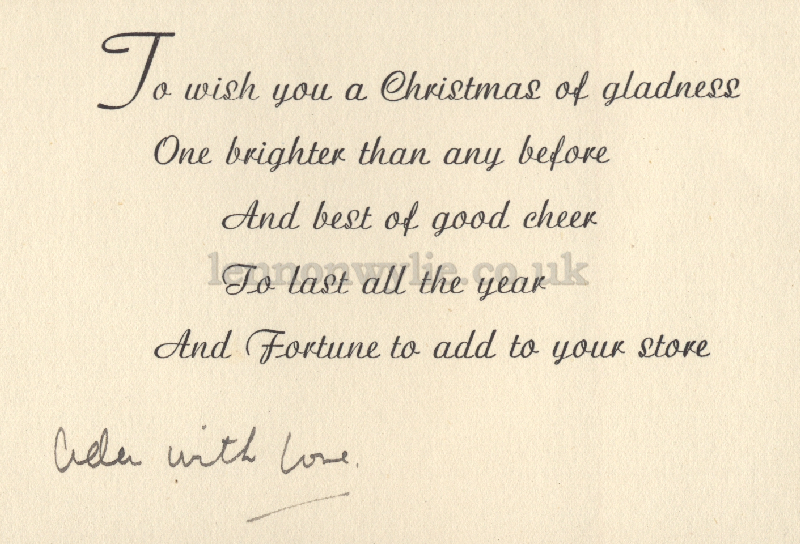 To wish you a Christmas of gladness
One brighter than any before
And best of good cheer
lennonwylie.co.uk
To last all the year
And Fortune to add to your store
with love.